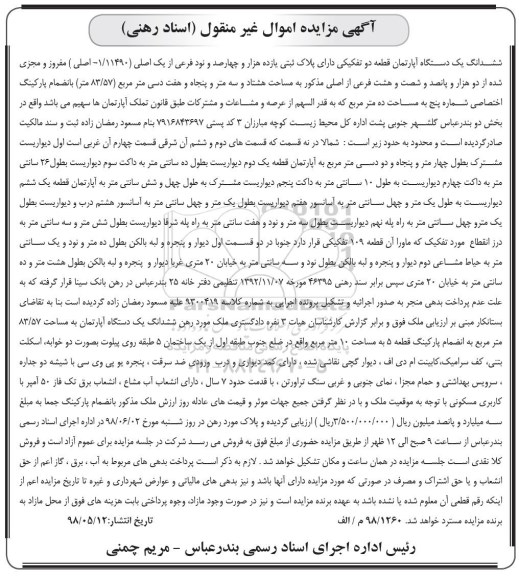 آگهی مزایده اموال غیر منقول (اسناد رهنی)
ششدانگ یک دستگاه آپارتمان قطعه دو تفکیکی دارای پلاک ثبتی یازده هزار و چهارصد و نود فرعی از یک اصلی (۱/۱۱۴۹۰- اصلی) مفروز و مجزی
شده از دو هزار و پانصد و شصت و هشت فرعی از اصلی مذکور به مساحت هشتاد و سه متر و پنجاه و هفت دسی متر مربع (۸۳/۵۷) بانضمام پارکینگ
اختصاصی شماره پنج به مساحت ده متر مربع که به قدر السهم از عرصه و مشاعات و مشترکات طبق قانون تملک آپارتمان ها سهیم می باشد واقع در
بخش دو بندرعباس گلشهر جنوبی پشت اداره کل محیط زیست کوچه مبارزان ۳ کد پستی ۷۹۱۶۸۴۳۶۹۷ بنام مسعود رمضان زاده ثبت و سند مالکیت
صادرگردیده است و محدود به حدود زیر است : شمالا در نه قسمت که قسمت های دوم و ششم آن شرقی قسمت چهارم آن غربی است اول دیواریست
مشترک بطول چهار متر و پنجاه و دو دسی متر مربع به آپارتمان قطعه یک دوم دیواریست بطول ده سانتی متر به داکت سوم دیواریست بطول ۲۶ سانتی
متر به داکت چهارم دیواریست به طول ۱۰ سانتی متر به داکت پنجم دیواریست مشترک به طول چهل و شش سانتی متر به آپارتمان قطعه یک ششم
دیواریست به طول یک متر و چهل سانتی متر به آسانسور هفتم دیواریست بطول یک متر و چهل سانتی متر به آسانسور هشتم درب و دیواریست بطول
یک مترو چهل سانتی متر به راه پله نهم دیواریست بطول سه متر و نود و هفت سانتی متر به راه پله شرقا دیواریست بطول شش متر و سه سانتی متر به
درز انقطاع مورد تفکیک که ماورا آن قطعه ۱۰۹ تفکیکی قرار دارد جنوبا در دو قسمت اول دیوار و پنجره و لبه بالکن بطول ده متر و نود و یک سانتی
متر به حیاط مشاعی دوم دیوار و پنجره و لبه بالکن بطول نود و سه سانتی متر به خیابان ۲۰ متری غربا دیوار و پنجره و لبه بالکن بطول هشت متر و ده
سانتی متر به خیابان ۲۰ متری سپس برابر سند رهنی ۴۶۳۹۵ مورخه ۱۳۹۲/۱۱/۰۷ تنظیمی دفتر خانه ۲۵ بندرعباس در رهن بانک سینا قرار گرفته که به
علت عدم پرداخت بدهی منجر به صدور اجرائیه و تشکیل پرونده اجرایی به شماره کلاسه ۹۳۰۰۴۱۹ علیه مسعود رمضان زاده گردیده است بنا به تقاضای
بستانکار مبنی بر ارزیابی ملک فوق و برابر گزارش کارشناسان هیات ۳ نفره دادگستری ملک مورد رهن ششدانگ یک دستگاه آپارتمان به مساحت ۸۳/۵۷
متر مربع به انضمام پارکینگ قطعه ۵ به مساحت ۱۰ متر مربع واقع در ضلع جنوب طبقه اول از یک ساختمان ۵ طبقه روی پیلوت بصورت دو خوابه، اسکلت
بتنی، کف سرامیک،کابینت ام دی اف ، دیوار گچی نقاشی شده ، دارای کمد دیواری و درب ورودی ضد سرقت ، پنجره یو پی وی سی با شیشه دو جداره
، سرویس بهداشتی و حمام مجزا ، نمای جنوبی و غربی سنگ تراورتن ، با قدمت حدود ۷ سال ، دارای انشعاب آب مشاع ، انشعاب برق تک فاز ۵۰ آمپر با
کاربری مسکونی با توجه به موقعیت ملک و با در نظر گرفتن جمیع جهات موثر و قیمت های عادله روز ارزش ملک مذکور بانضمام پارکینگ جمعا به مبلغ
سه میلیارد و پانصد میلیون ریال (۳/۵۰۰/۰۰۰/۰۰۰ریال) ارزیابی گردیده و پلاک مورد رهن در روز شنبه مورخ ۹۸/۰۶/۰۲ در اداره اجرای اسناد رسمی
بندرعباس از ساعت ۹ صبح الی ۱۲ ظهر از طریق مزایده حضوری از مبلغ فوق به فروش می رسد شرکت در جلسه مزایده برای عموم آزاد است و فروش
کلا نقدی است جلسه مزایده در همان ساعت و مکان تشکیل خواهد شد . لازم به ذکر است پرداخت بدهی های مربوط به آب ، برق ، گاز اعم از حق
انشعاب و یا حق اشتراک و مصرف در صورتی که مورد مزایده دارای آنها باشد و نیز بدهی های مالیاتی و عوارض شهرداری و غیره تا تاریخ مزایده اعم از
اینکه رقم قطعی آن معلوم شده یا نشده باشد به عهده برنده مزایده است و نیز در صورت وجود مازاد، وجوه پرداختی بابت هزینه های فوق از محل مازاد به
برنده مزایده مسترد خواهد شد. ۹۸/۱۲۶۰ م / الف تاریخ انتشار:۹۸/۰۵/۱۲
رئیس اداره اجرای اسناد رسمی بندرعباس - مریم چمنی